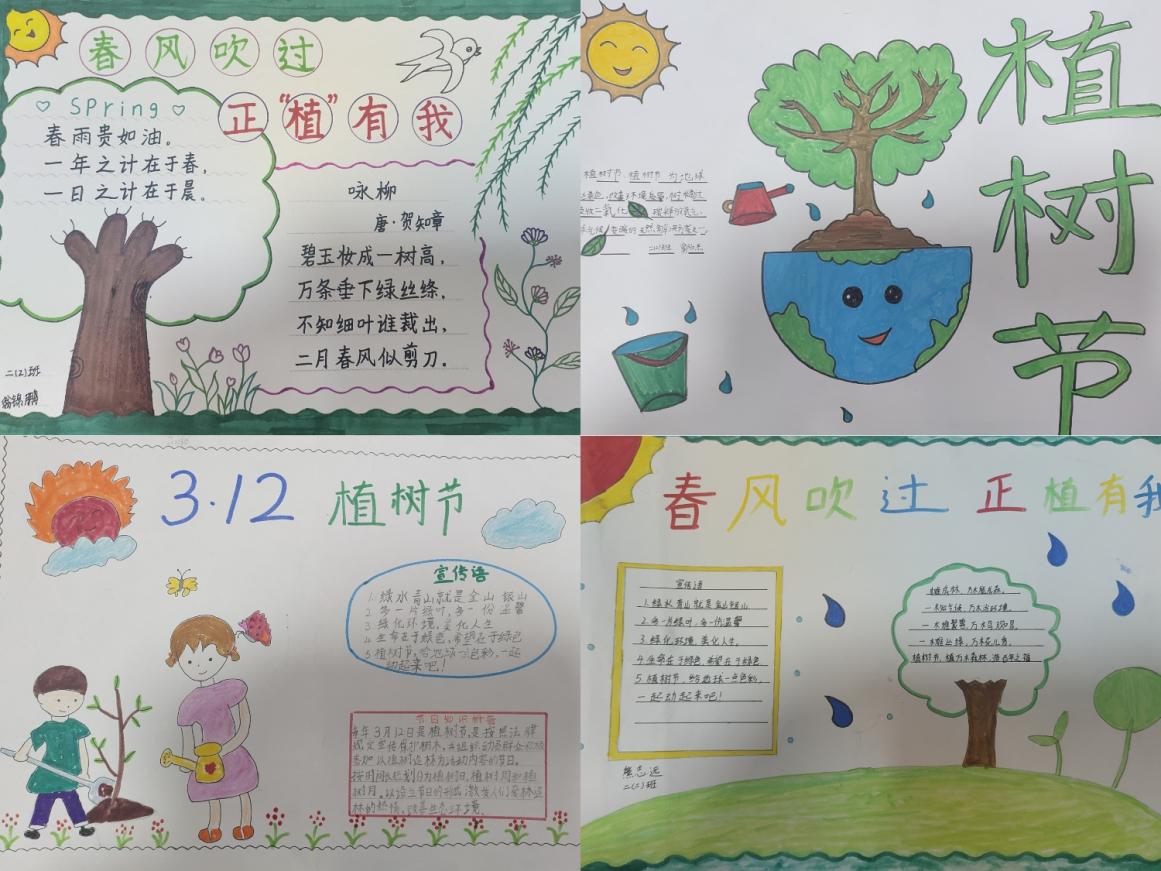 春风吹过
正“植”有我
Spring
春雨贵如油。
一年之计在于春,
一日之计在于晨。
咏柳
唐·贺知章
碧玉妆成一树高,
万条垂下绿丝绦。
不知细叶谁裁出,
二月春风似剪刀。
二(2)班
植树节
植树节,植树节,为地球
3·12 植树节
宣传语
1.绿水青山就是金山银山
2.多一片绿叶,多一份温馨
3.绿化环境,美化人生
4.生存在于绿色,希望在于绿色
5.植树节,给地球一点色彩,一起
动起来吧!
每年3月12日是植树节,是按照法律
规定宣传保护树木,并组织动员群众积极
参加以植树造林为活动内容的节日。
按时间长短划分为植树日、植树周和植
树月。以设立节日的形式激发人们爱林造
林的热情,改善生态环境。
春风吹过正植有我
宣传语
1.绿水青山就是金山银山。
2.多一片绿叶,多一份温馨
3.绿化环境,美化人生。
4.生存在于绿色,希望在于绿色
5.植树节,给地球一点色彩,
一起动起来吧!
熊志远
二(2)班